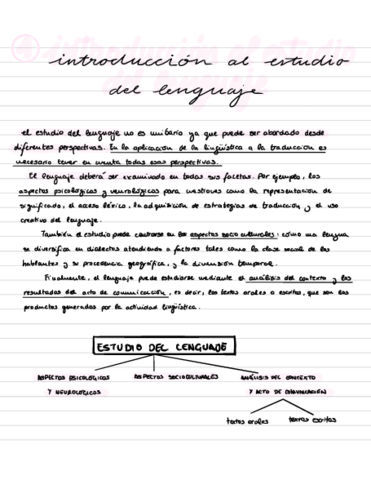 introducción al estudio
del lenguaje
El estudio del lenguaje no es unitario ya que puede ser abordado desde
diferentes perspectivas. En la aplicación de la lingüística a la traducción es
necesario tener en cuenta todas esas perspectivas.
El lenguaje deberá ser examinado en todas sus facetas. Por ejemplo, los
aspectos psicológicos y neurológicos para cuestiones como la representación de
significado, el acceso léxico, la adquisición de estrategias de traducción y el uso
creativo del lenguaje.
También el estudio puede centrarse en los aspectos socioculturales: cómo una lengua
se diversifica en dialectos atendiendo a factores tales como la clase social de los
hablantes y su procedencia geográfica, y la dimensión temporal.
Finalmente, el lenguaje puede estudiarse mediante el análisis del contexto y los
resultados del acto de comunicación, es decir, los textos orales o escritos, que son los
productos generados por la actividad lingüística.
ESTUDIO DEL LENGUAJE
ASPECTOS PSICOLÓGICOS
Y NEUROLÓGICOS
ASPECTOS SOCIOCULTURALES
ANÁLISIS DEL CONTEXTO
Y ACTO DE COMUNICACIÓN
textos orales
textos escritos